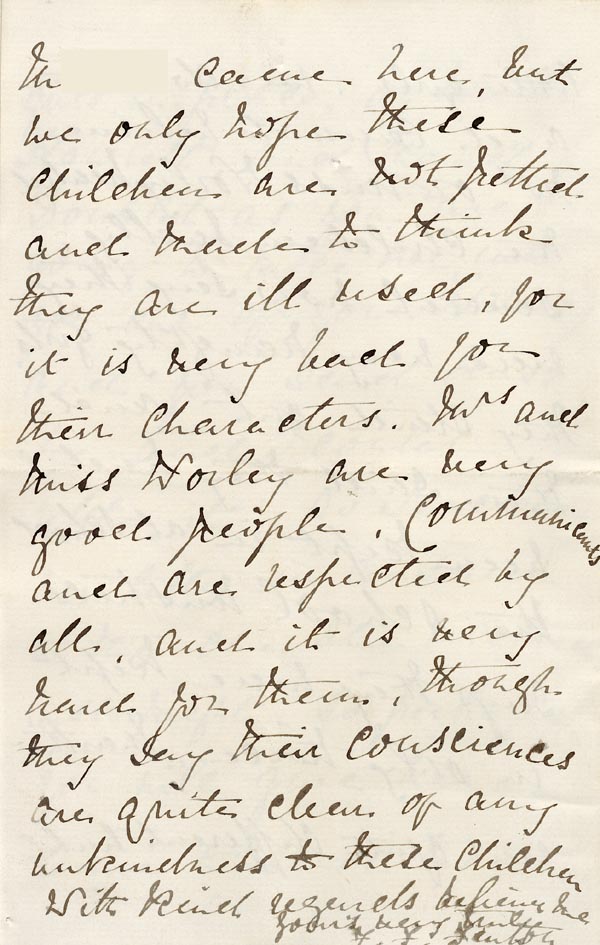 Mr came here, but
we only hope these
Children are not petted
and made to think
they are ill used, for
it is very bad for
their Characters. Mrs and
Miss Worley are very
good people, Communicants
and are respected by
all, and it is very
hard for them, though
they say their Consciences
are quite clear of any
unkindness to these Children
With Kind regards believe me
yours very truly